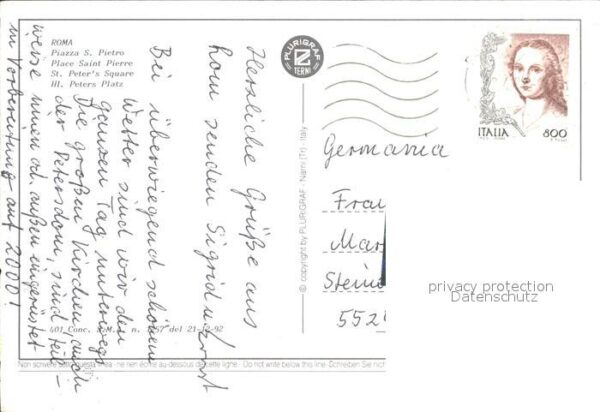 ROMA
Piazza S. Pietro
Place Saint Pierre
St. Peter's Square
Hl. Peters Platz
PLURIGRAF
TERNI
ITALIA 800
Germania
Frau
Mar
Stein
552
privacy protection
Datenschutz
© copyright by PLURIGRAF - Narni (Tr) - Italy
Herzliche Grüße aus
Rom senden Sigrid u. Ernst
Bei überwiegend schönem
Wetter sind wir den
ganzen Tag unterwegs
Die großen Kirchen, auch
der Petersdom, sind teil-
weise innen od. außen eingerüstet
in Vorbereitung auf 2000!
401 Conc. del 21-12-92
Non scrivere sotto questa linea - ne rien écrire au-dessous de cette ligne. Do not write below this line - Schreiben Sie nicht